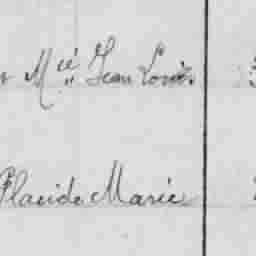 Mié Jean Louis
Placide Marie